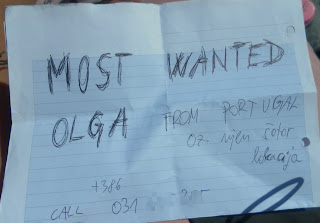 MOST WANTED
OLGA FROM PORTUGAL
oz. njen šofer
lokacija
+386
CALL 031